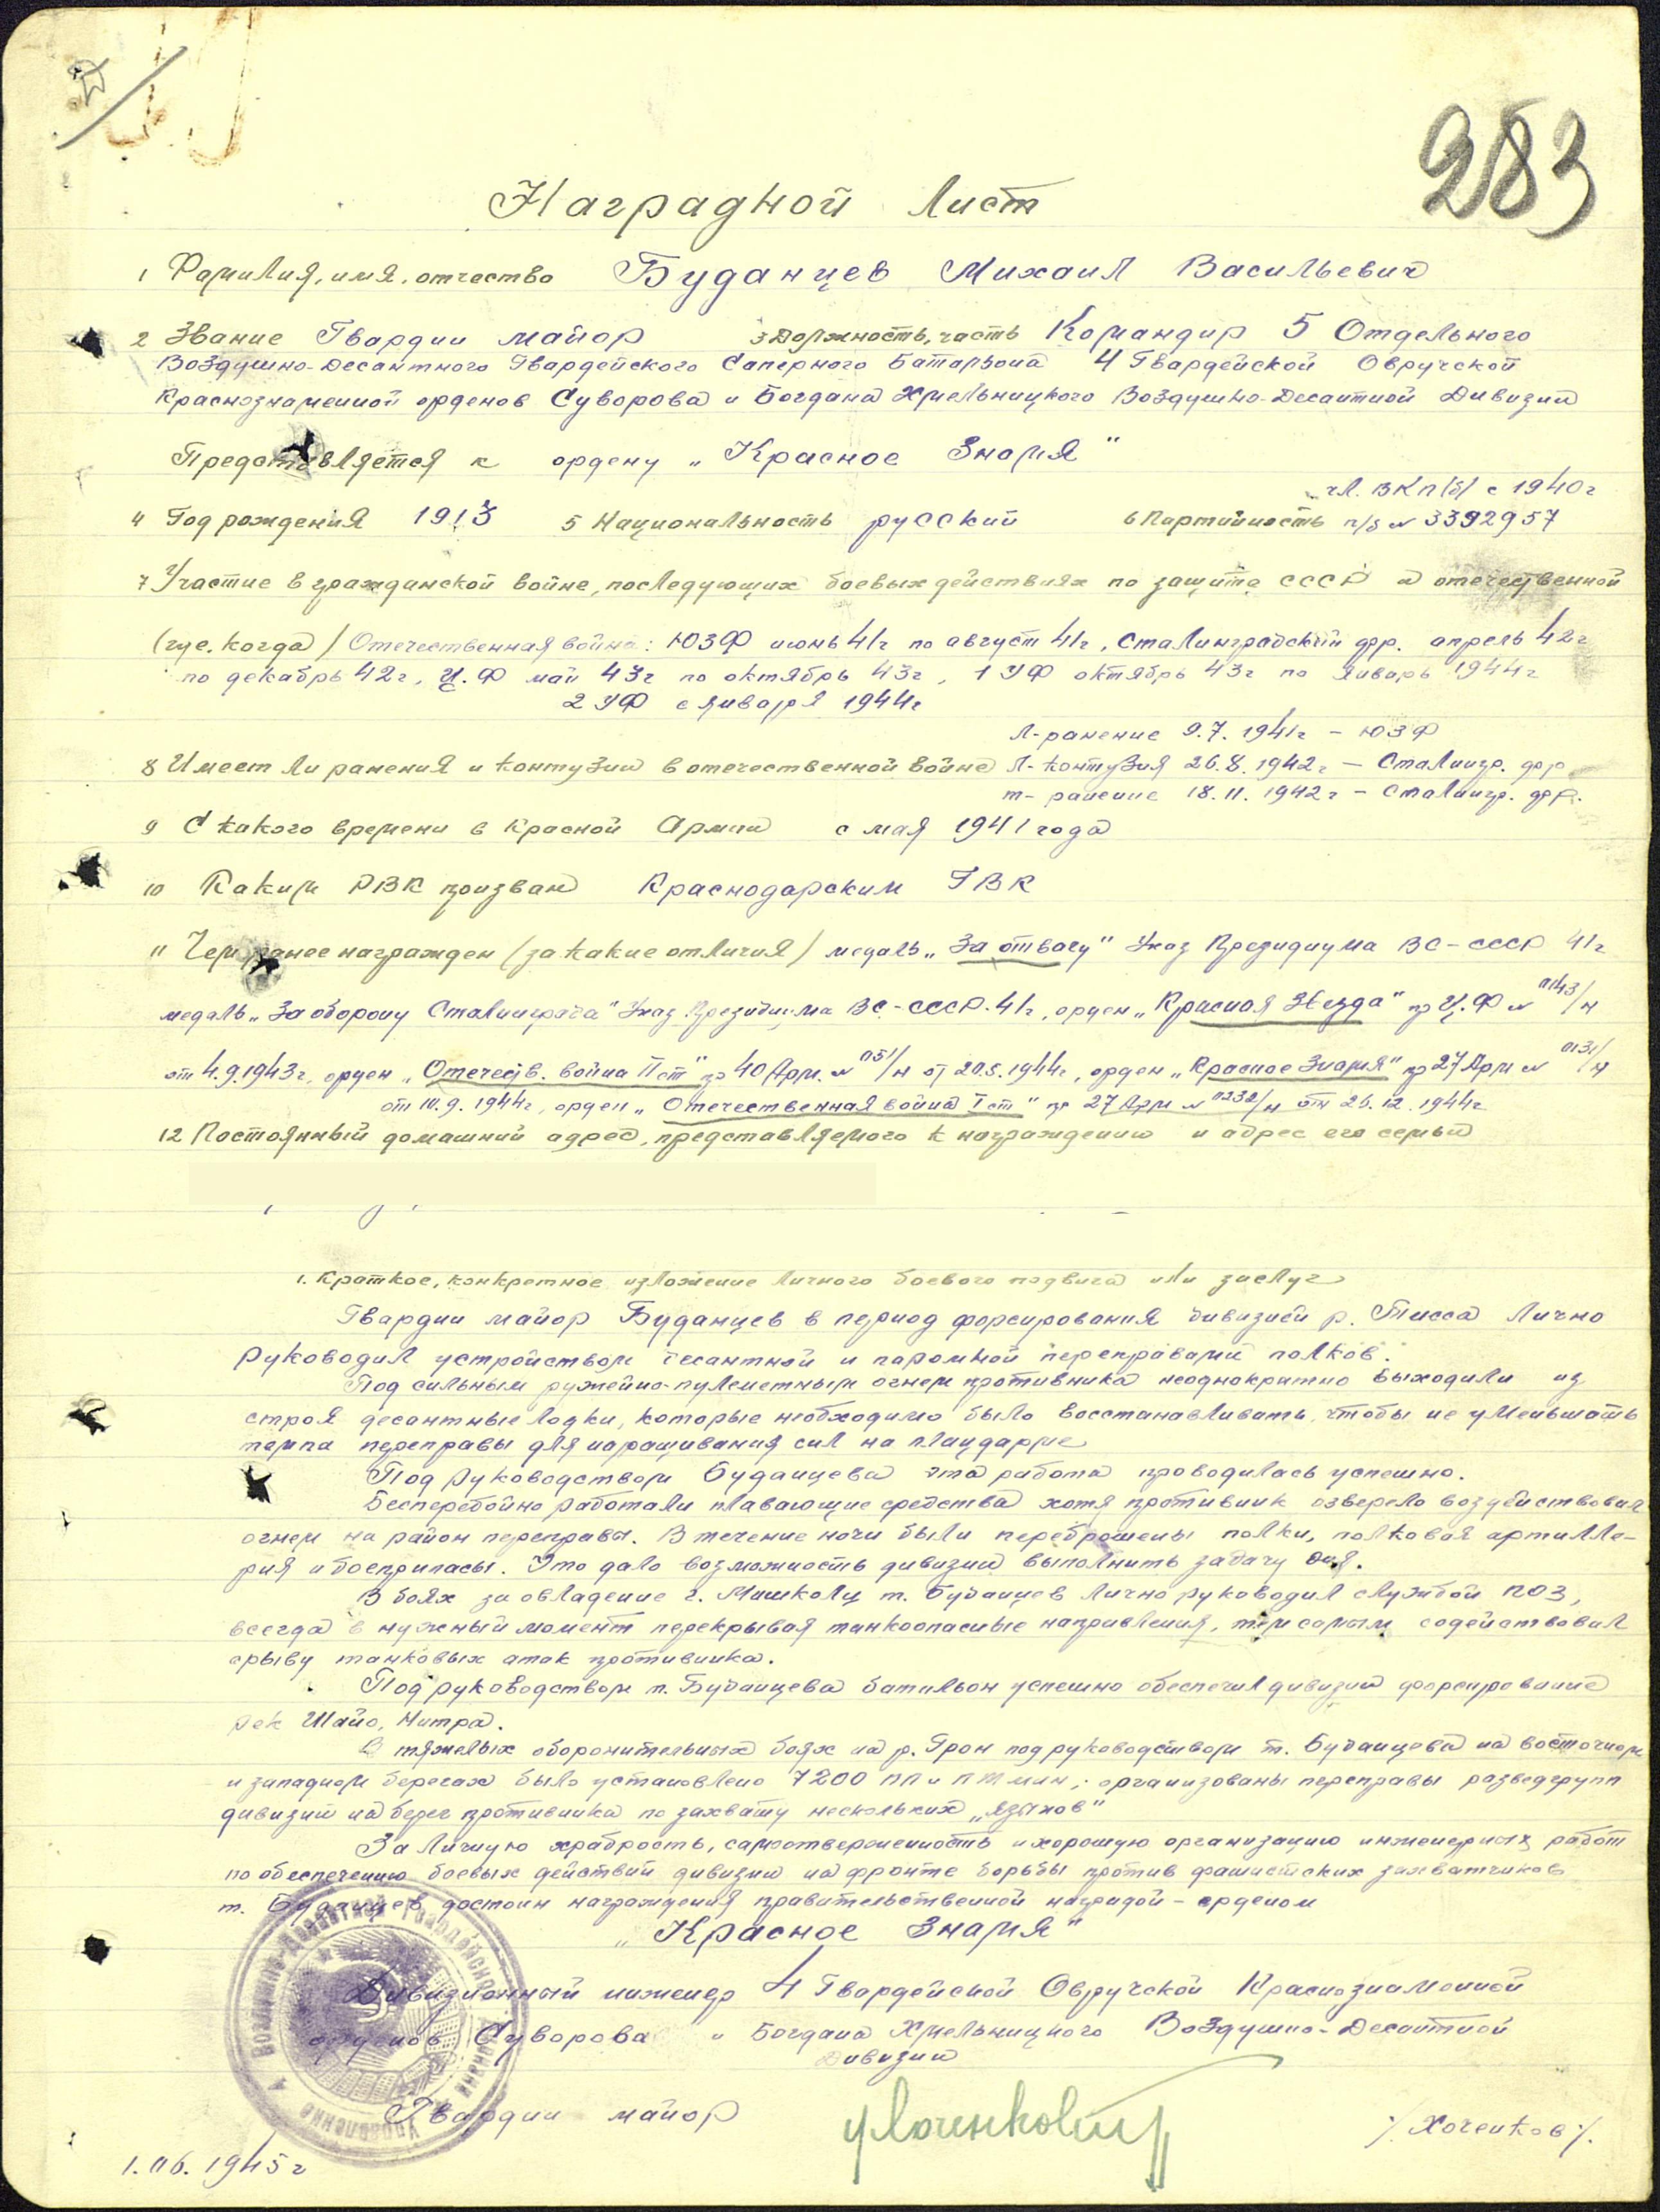 283
Наградной Лист
1 Фамилия, имя, отчество Буданцев Михаил Васильевич
2 Звание Гвардии майор 3 Должность, часть Командир 5 Отдельного
Воздушно-Десантного Гвардейского Саперного Батальона 4 Гвардейской Овручской
Краснознаменной орденов Суворова и Богдана Хмельницкого Воздушно-Десантной Дивизии
Представляется к ордену „Красное Знамя"
чл. ВКП(б) с 1940г
4 Год рождения 1913 5 Национальность русский 6 Партийность п/б № 3392957
7 Участие в гражданской войне, последующих боевых действиях по защите СССР и отечественной
(где, когда) Отечественная война: ЮЗФ июнь 41г по август 41г, Сталинградский фр. апрель 42г
по декабрь 42г, Ц.Ф май 43г по октябрь 43г, 1 УФ октябрь 43г по январь 1944г
2 УФ с января 1944г
Л-ранение 9.7.1941г – ЮЗФ
8 Имеет ли ранения и контузии в отечественной войне Л-контузия 26.8.1942г – Сталингр. фр.
т-ранение 18.11.1942г – Сталингр. фр.
9 С какого времени в Красной Армии с мая 1941 года
10 Каким РВК призван Краснодарским ГВК
11 Чем ранее награжден (за какие отличия) медаль „За отвагу" Указ Президиума ВС-СССР 41г
медаль „За оборону Сталинграда" Указ Президиума ВС-СССР.41г, орден „Красная Звезда" пр Ц.Ф № 0143/н
от 4.9.1943г, орден „Отечеств. война II ст" пр 40 Арм. № 051/н от 20.5.1944г, орден „Красное Знамя" пр 27 Арм № 0131/н
от 10.9.1944г, орден „Отечественная война I ст" пр 27 Арм № 0232/н от 26.12.1944г
12 Постоянный домашний адрес, представляемого к награждению и адрес его семьи
1. Краткое, конкретное изложение личного боевого подвига или заслуг
Гвардии майор Буданцев в период форсирования дивизией р. Тисса лично
руководил устройством десантной и паромной переправами полков.
Под сильным ружейно-пулеметным огнем противника неоднократно выходили из
строя десантные лодки, которые необходимо было восстанавливать, чтобы не уменьшать
темпа переправы для наращивания сил на плацдарме
Под руководством Буданцева эта работа проводилась успешно.
Бесперебойно работали плавающие средства хотя противник озверело воздействовал
огнем на район переправы. В течение ночи были переброшены полки, полковая артилле-
рия и боеприпасы. Это дало возможность дивизии выполнить задачу дня.
В боях за овладение г. Мишкольц т. Буданцев лично руководил службой ПОЗ,
всегда в нужный момент перекрывая танкоопасные направления, тем самым содействовал
срыву танковых атак противника.
Под руководством т. Буданцева батальон успешно обеспечил дивизии форсирование
рек Шайо, Нитра.
В тяжелых оборонительных боях на р. Грон под руководством т. Буданцева на восточном
и западном берегах было установлено 7200 ПП и ПТ мин; организованы переправы разведгрупп
дивизии на берег противника по захвату нескольких „языков"
За личную храбрость, самоотверженность и хорошую организацию инженерных работ
по обеспечению боевых действий дивизии на фронте борьбы против фашистских захватчиков
т. Буданцев достоин награждения правительственной наградой – орденом
„Красное Знамя"
Дивизионный инженер 4 Гвардейской Овручской Краснознаменной
орденов Суворова и Богдана Хмельницкого Воздушно-Десантной
Дивизии
Гвардии майор /Хоченков/.
1.06.1945г